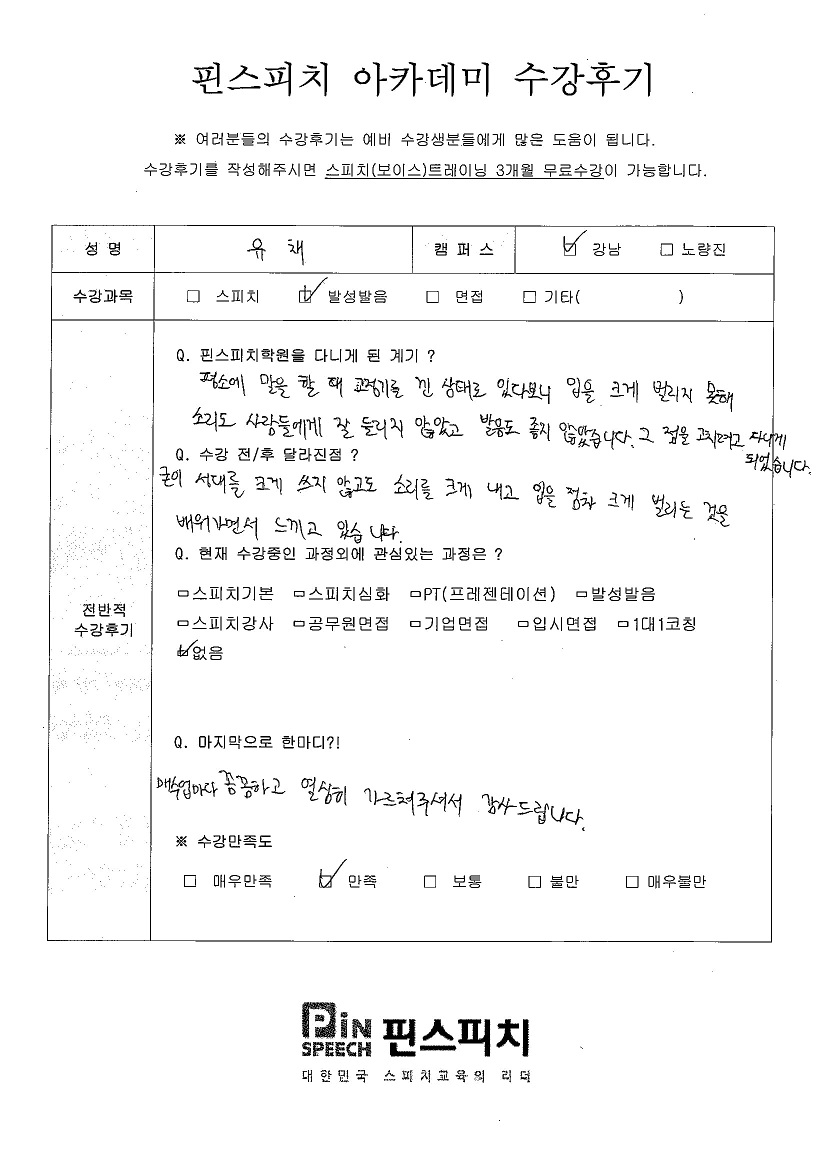 핀스피치 아카데미 수강후기
※ 여러분들의 수강후기는 예비 수강생분들에게 많은 도움이 됩니다.
수강후기를 작성해주시면 스피치(보이스)트레이닝 3개월 무료수강이 가능합니다.
성 명 유 채 캠 퍼 스 ☑ 강남 □ 노량진
수강과목 □ 스피치 ☑ 발성발음 □ 면접 □ 기타( )
전반적
수강후기
Q. 핀스피치학원을 다니게 된 계기 ?
평소에 말을 할 때 교정기를 낀 상태로 있다보니 입을 크게 벌리지 못해
소리도 사람들에게 잘 들리지 않았고 발음도 좋지 않았습니다. 그 점을 고치려고 다니게
되었습니다.
Q. 수강 전/후 달라진점 ?
굳이 성대를 크게 쓰지 않고도 소리를 크게 내고 입을 점차 크게 벌리는 것을
배워가면서 느끼고 있습니다.
Q. 현재 수강중인 과정외에 관심있는 과정은 ?
□스피치기본 □스피치심화 □PT(프레젠테이션) □발성발음
□스피치강사 □공무원면접 □기업면접 □입시면접 □1대1코칭
☑없음
Q. 마지막으로 한마디?!
매수업마다 꼼꼼하고 열심히 가르쳐주셔서 감사드립니다.
※ 수강만족도
□ 매우만족 ☑ 만족 □ 보통 □ 불만 □ 매우불만
PiN
SPEECH 핀스피치
대한민국 스피치교육의 리더